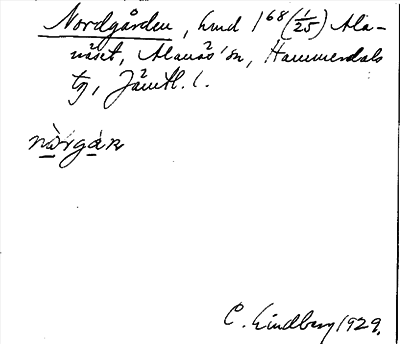 Nordgården, hmd 1⁶⁸(1/25) Ala-
näset, Alanäs sn, Hammerdals
tg, Jämtl. l.
nòrgáṛn
C. Lindberg 1929.